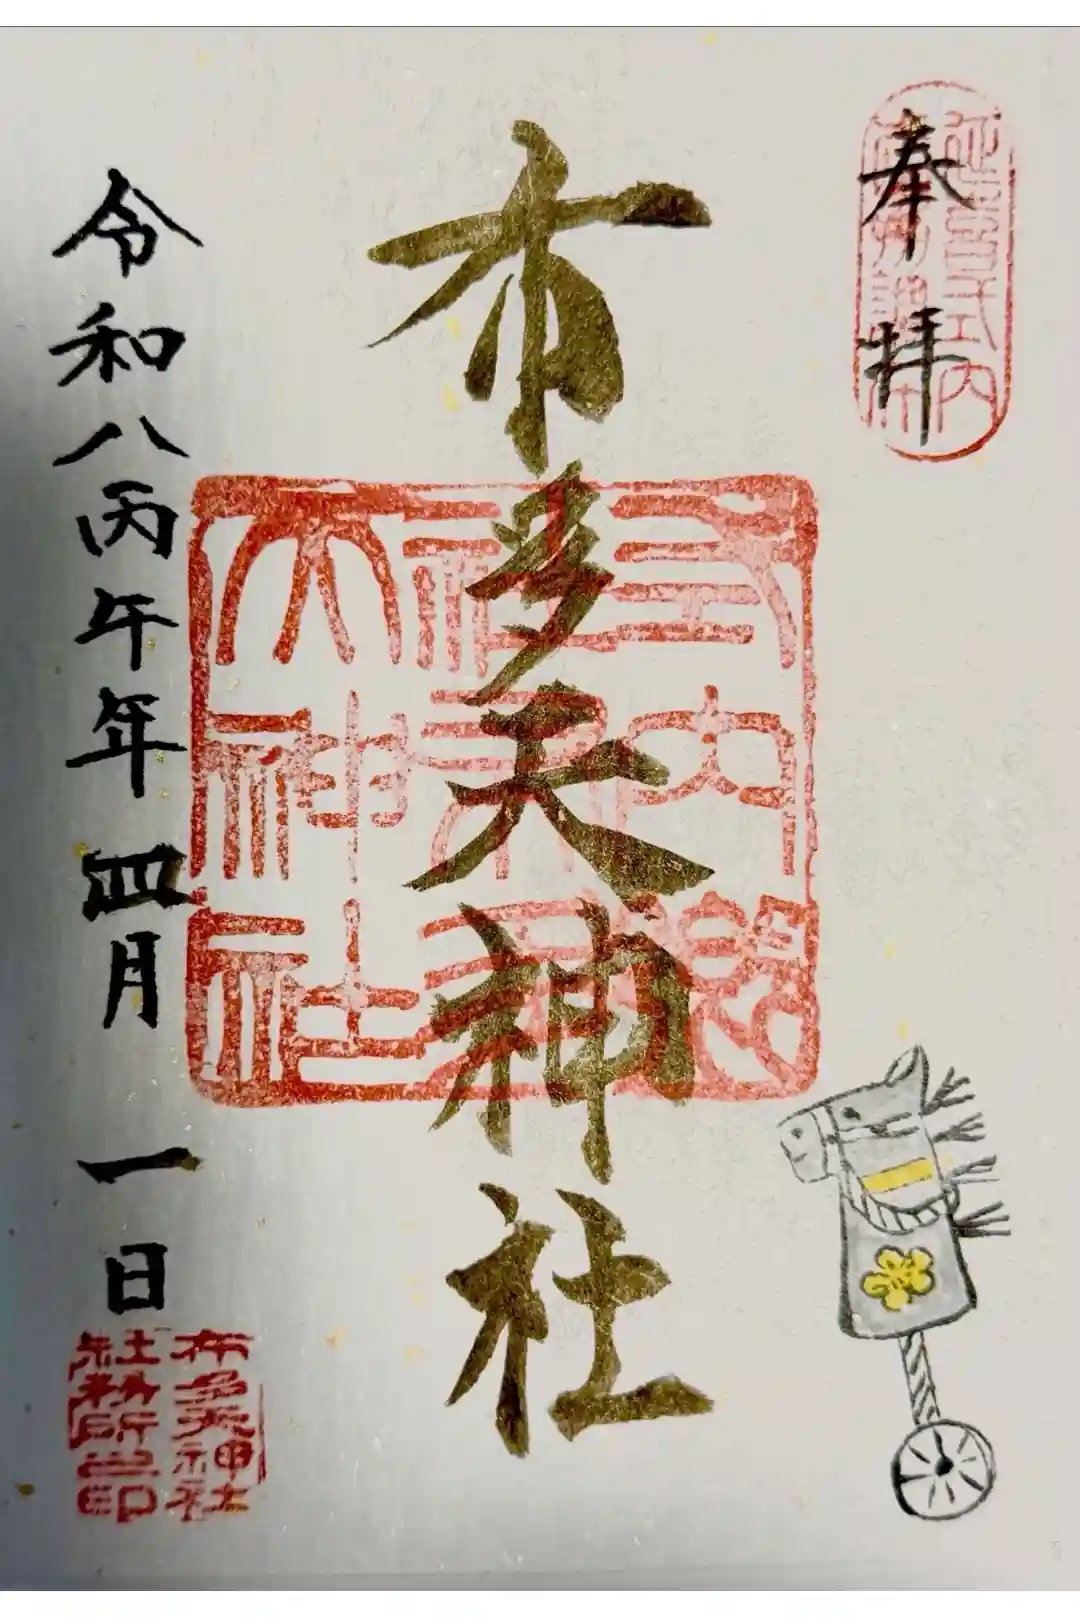 奉拝
延喜式内
布多天神社
式内郷
社布多
天神社
令和八丙午年四月一日
布多天神社
社務所之印